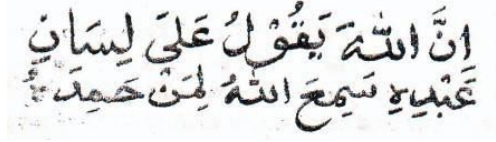 اِنَّ اللّٰهَ يَقُوْلُ عَلَىَ لِسَانِ
عَبْدِهِ سَمِعَ اللّٰهُ لِمَنْ حَمِدَهُ